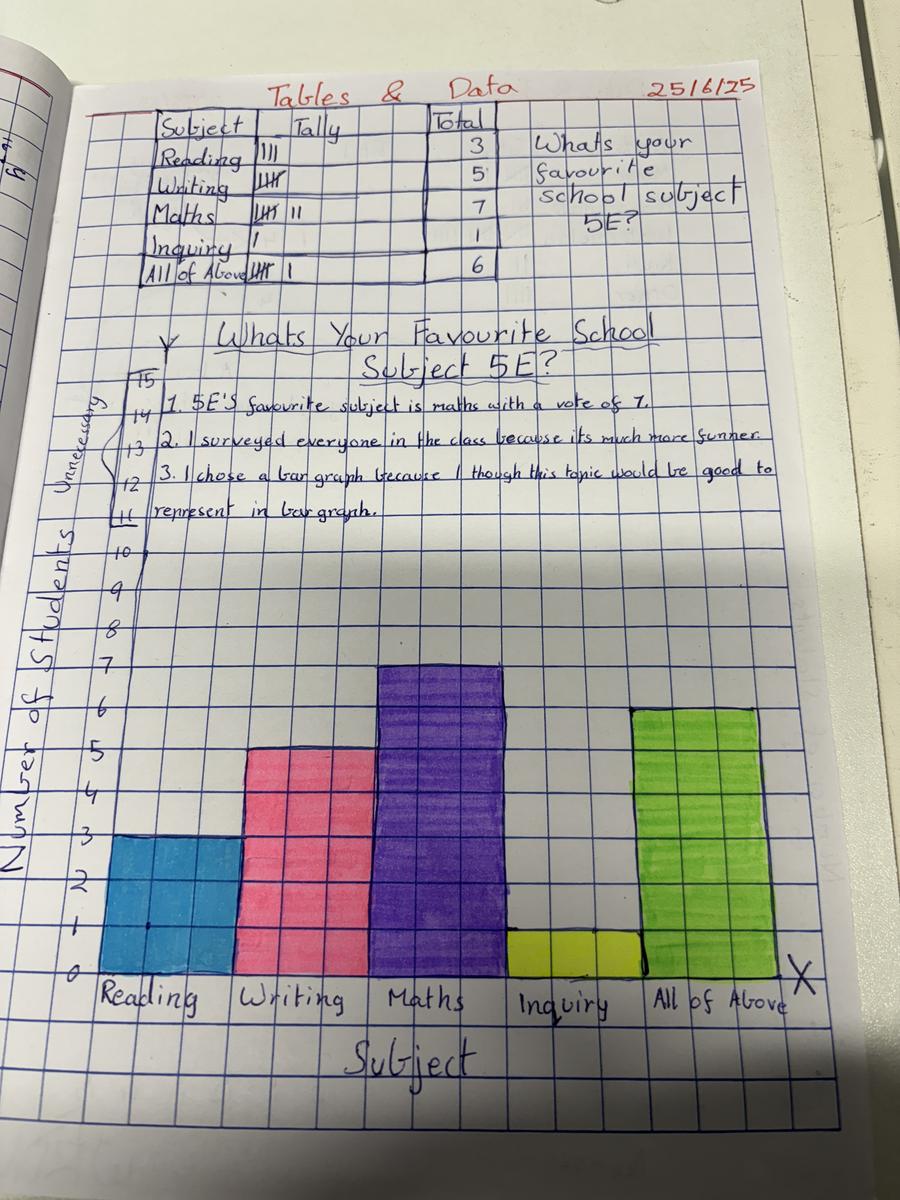 Tables & Data 25/6/25
Subject Tally Total
Reading 3
Writing 5
Maths 7
Inquiry 1
All of Above 6
Whats your
favourite
school subject
5E?
Y Whats Your Favourite School
Subject 5E?
1. 5E'S favourite subject is maths with a vote of 7.
2. I surveyed everyone in the class because its much more funner.
3. I chose a bar graph because I though this topic would be good to
represent in bar graph.
Unnecessary
Number of Students
15
14
13
12
11
10
9
8
7
6
5
4
3
2
1
0
X
Reading Writing Maths Inquiry All of Above
Subject